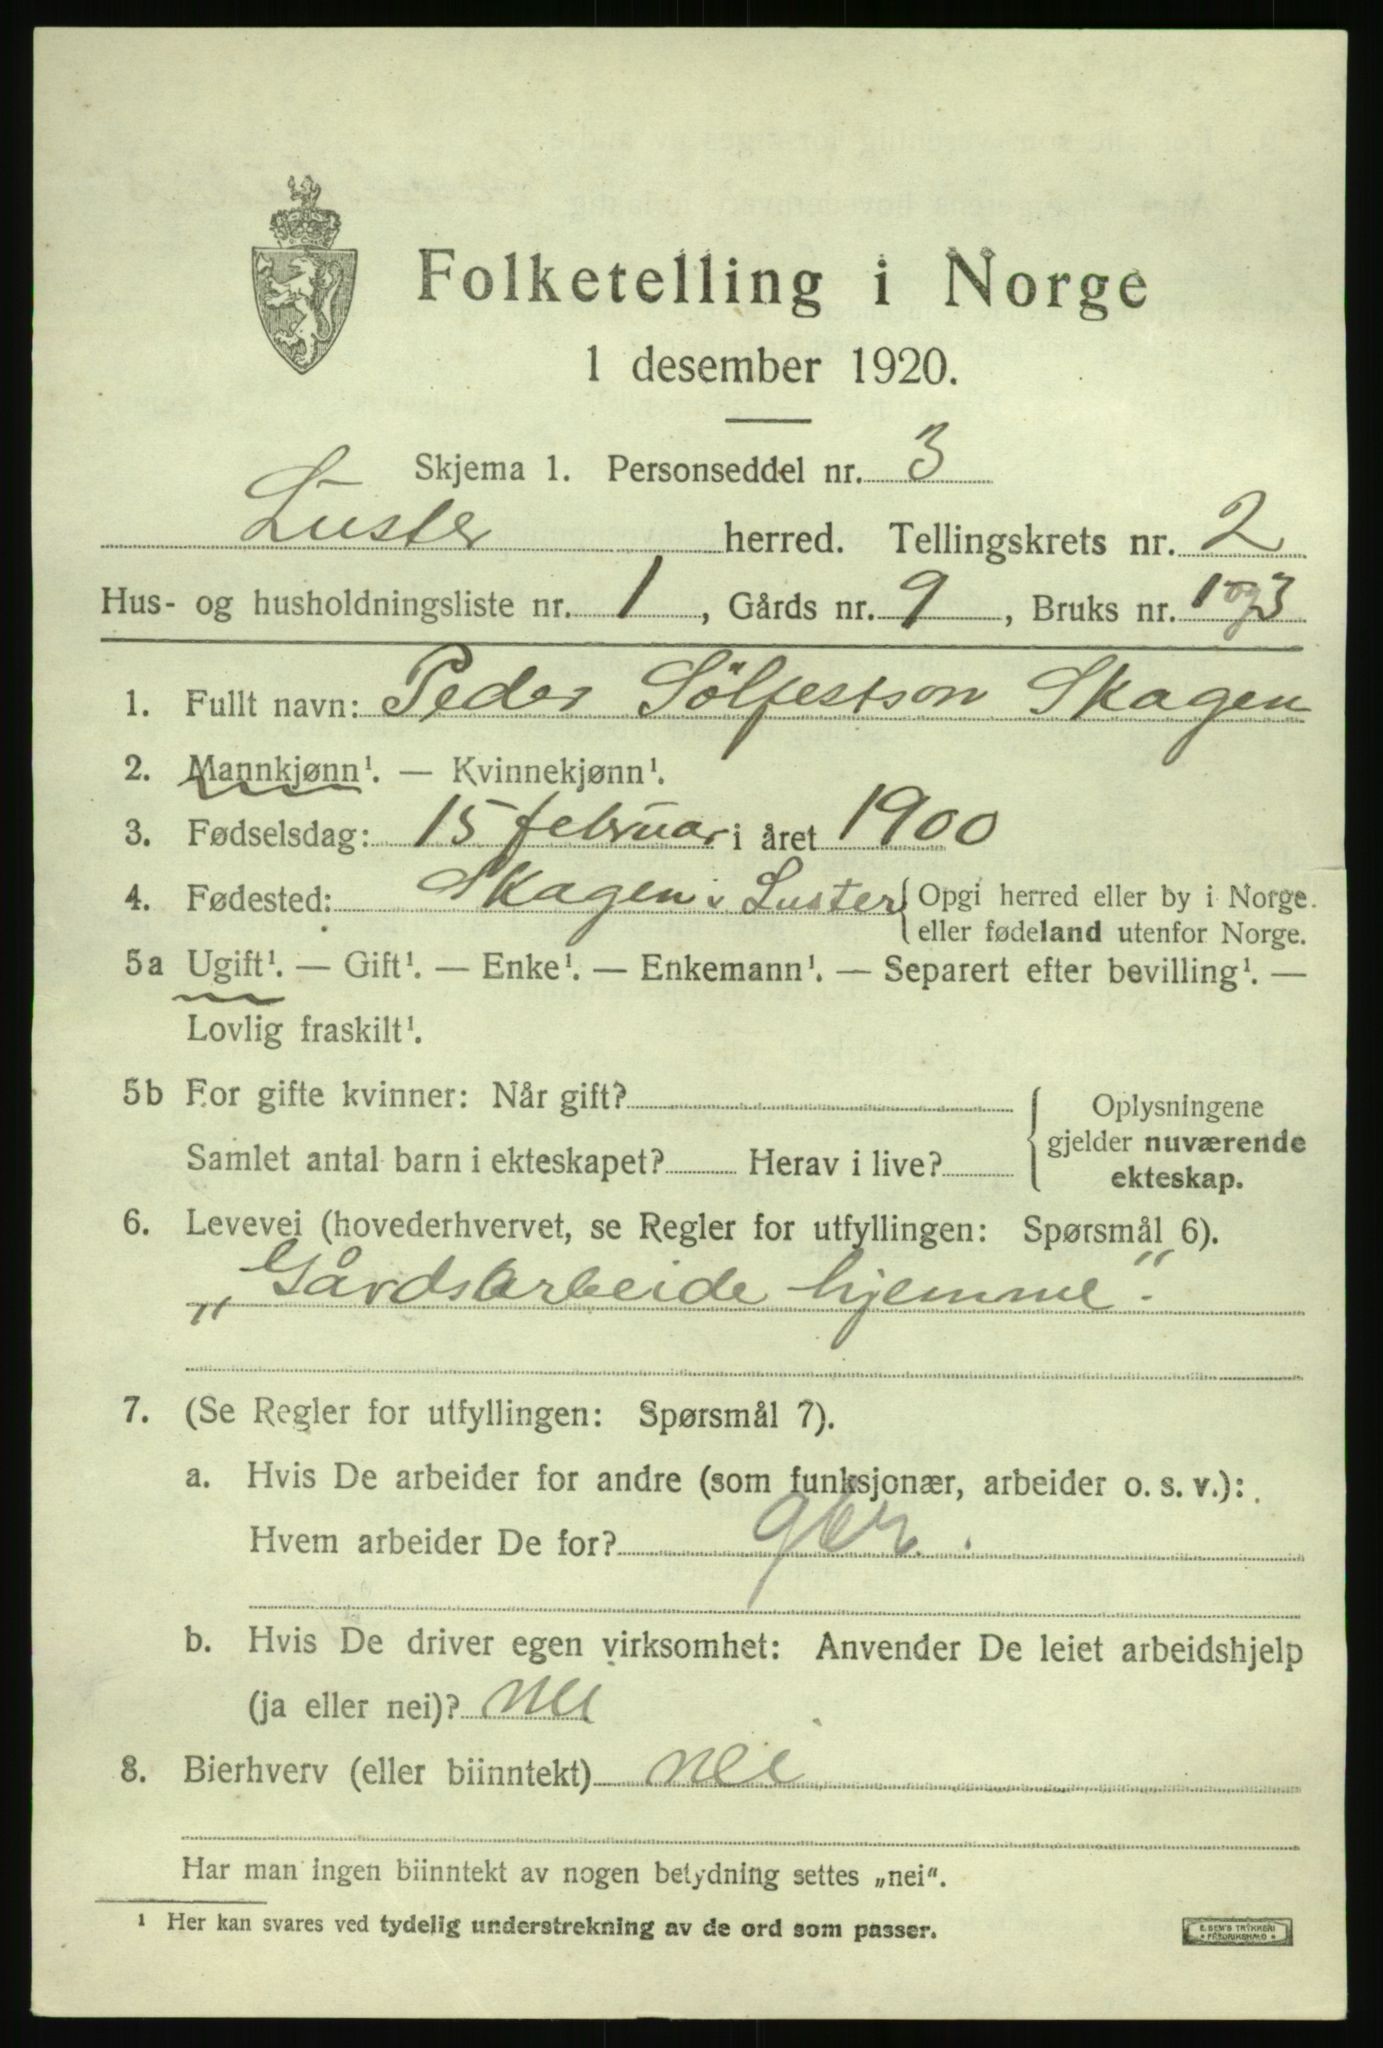 Folketelling i Norge
1 desember 1920.
Skjema 1. Personseddel nr. 3
Luster herred. Tellingskrets nr. 2
Hus- og husholdningsliste nr. 1, Gårds nr. 9, Bruks nr. 1 og 3
1. Fullt navn: Peder Sölfestson Skagen
2. Mannkjønn¹. — Kvinnekjønn¹.
3. Fødselsdag: 15 februar i året 1900
4. Fødested: Skagen i Luster { Opgi herred eller by i Norge.
eller fødeland utenfor Norge.
5a Ugift¹. — Gift¹. — Enke¹. — Enkemann¹. — Separert efter bevilling¹. —
Lovlig fraskilt¹.
5b For gifte kvinner: Når gift?
Samlet antal barn i ekteskapet? Herav i live?
Oplysningene
gjelder nuværende
ekteskap.
6. Levevei (hovederhvervet, se Regler for utfyllingen: Spørsmål 6).
„Gårdsarbeide hjemme“.
7. (Se Regler for utfyllingen: Spørsmål 7).
a. Hvis De arbeider for andre (som funksjonær, arbeider o. s. v.):
Hvem arbeider De for?
b. Hvis De driver egen virksomhet: Anvender De leiet arbeidshjelp
(ja eller nei)? nei
8. Bierhverv (eller biinntekt) nei
Har man ingen biinntekt av nogen betydning settes „nei“.
¹ Her kan svares ved tydelig understrekning av de ord som passer.
E. SEM'S TRYKKERI
* FREDRIKSHALD *